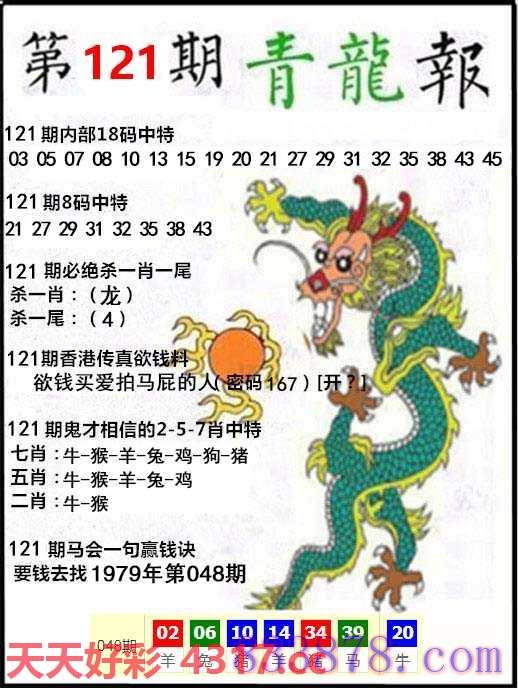 第121期青龍報
121期内部18码中特
03 05 07 08 10 13 15 19 20 21 27 29 31 32 35 38 43 45
121期8码中特
21 27 29 31 32 35 38 43
121期必绝杀一肖一尾
杀一肖:(龙)
杀一尾:(4)
121期香港传真欲钱料
欲钱买爱拍马屁的人(密码167)[开?]
121期鬼才相信的2-5-7肖中特
七肖:牛-猴-羊-兔-鸡-狗-猪
五肖:牛-猴-羊-兔-鸡
二肖:牛-猴
121期马会一句赢钱诀
要钱去找1979年第048期
048期 02 06 10 14 34 39 20
羊 兔 猪 羊 猪 马 牛
天天好彩-4317.cc